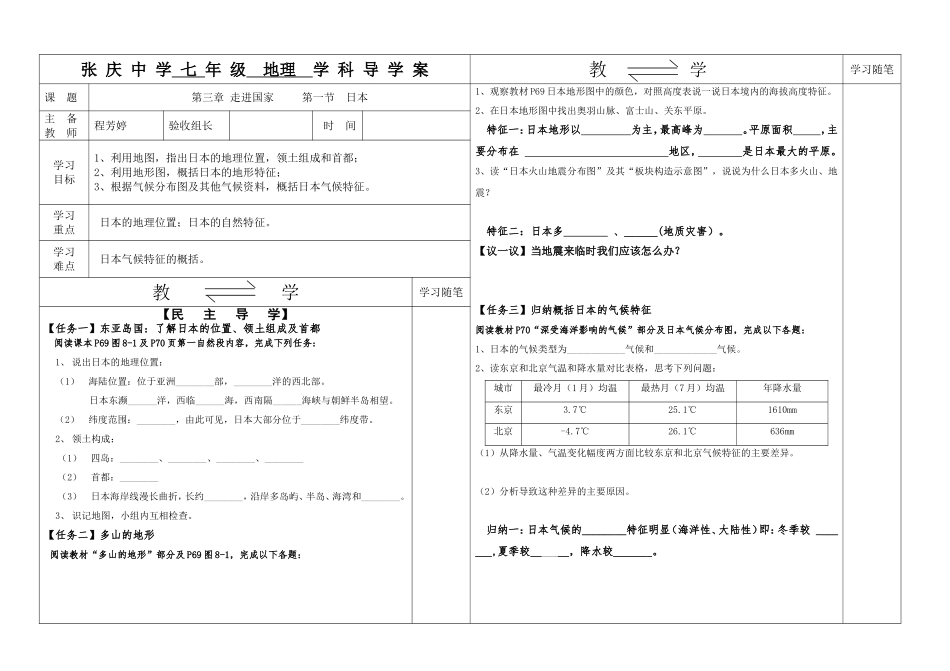 张 庆 中 学 七 年 级 地理 学 科 导 学 案
课 题 第三章 走进国家 第一节 日本
主 备
教 师 程芳婷 验收组长 时 间
学习
目标
1、利用地图，指出日本的地理位置，领土组成和首都；
2、利用地形图，概括日本的地形特征；
3、根据气候分布图及其他气候资料，概括日本气候特征。
学习
重点
日本的地理位置；日本的自然特征。
学习
难点
日本气候特征的概括。
教 学 学习随笔
【民 主 导 学】
【任务一】东亚岛国：了解日本的位置、领土组成及首都
阅读课本P69图8-1及P70页第一自然段内容，完成下列任务：
1、 说出日本的地理位置：
（1） 海陆位置：位于亚洲________部，________洋的西北部。
日本东濒______洋，西临______海。西南隔______海峡与朝鲜半岛相望。
（2） 纬度范围：________，由此可见，日本大部分位于________纬度带。
2、 领土构成：
（1） 四岛：________、________、________、________
（2） 首都：________
（3） 日本海岸线漫长曲折，长约________，沿岸多岛屿、半岛、海湾和________。
3、 识记地图，小组内互相检查。
【任务二】多山的地形
阅读教材“多山的地形”部分及P69图8-1，完成以下各题：
教 学 学习随笔
1、观察教材P69日本地形图中的颜色，对照高度表说一说日本境内的海拔高度特征。
2、在日本地形图中找出奥羽山脉、富士山、关东平原。
特征一：日本地形以________为主，最高峰为______。平原面积_____，主
要分布在 ______________________地区，_______是日本最大的平原。
3、读“日本火山地震分布图”及其“板块构造示意图”，说说为什么日本多火山、地
震？
特征二：日本多________ 、______(地质灾害）。
【议一议】当地震来临时我们应该怎么办？
【任务三】归纳概括日本的气候特征
阅读教材P70“深受海洋影响的气候”部分及日本气候分布图，完成以下各题：
1、日本的气候类型为____________气候和_____________气候。
2、读东京和北京气温和降水量对比表格，思考下列问题：
城市 最冷月（1月）均温 最热月（7月）均温 年降水量
东京 3.7℃ 25.1℃ 1610mm
北京 -4.7℃ 26.1℃ 636mm
（1）从降水量、气温变化幅度两方面比较东京和北京气候特征的主要差异。
（2）分析导致这种差异的主要原因。
归纳一：日本气候的_______特征明显（海洋性、大陆性）即：冬季较 ____
___，夏季较______，降水较______。